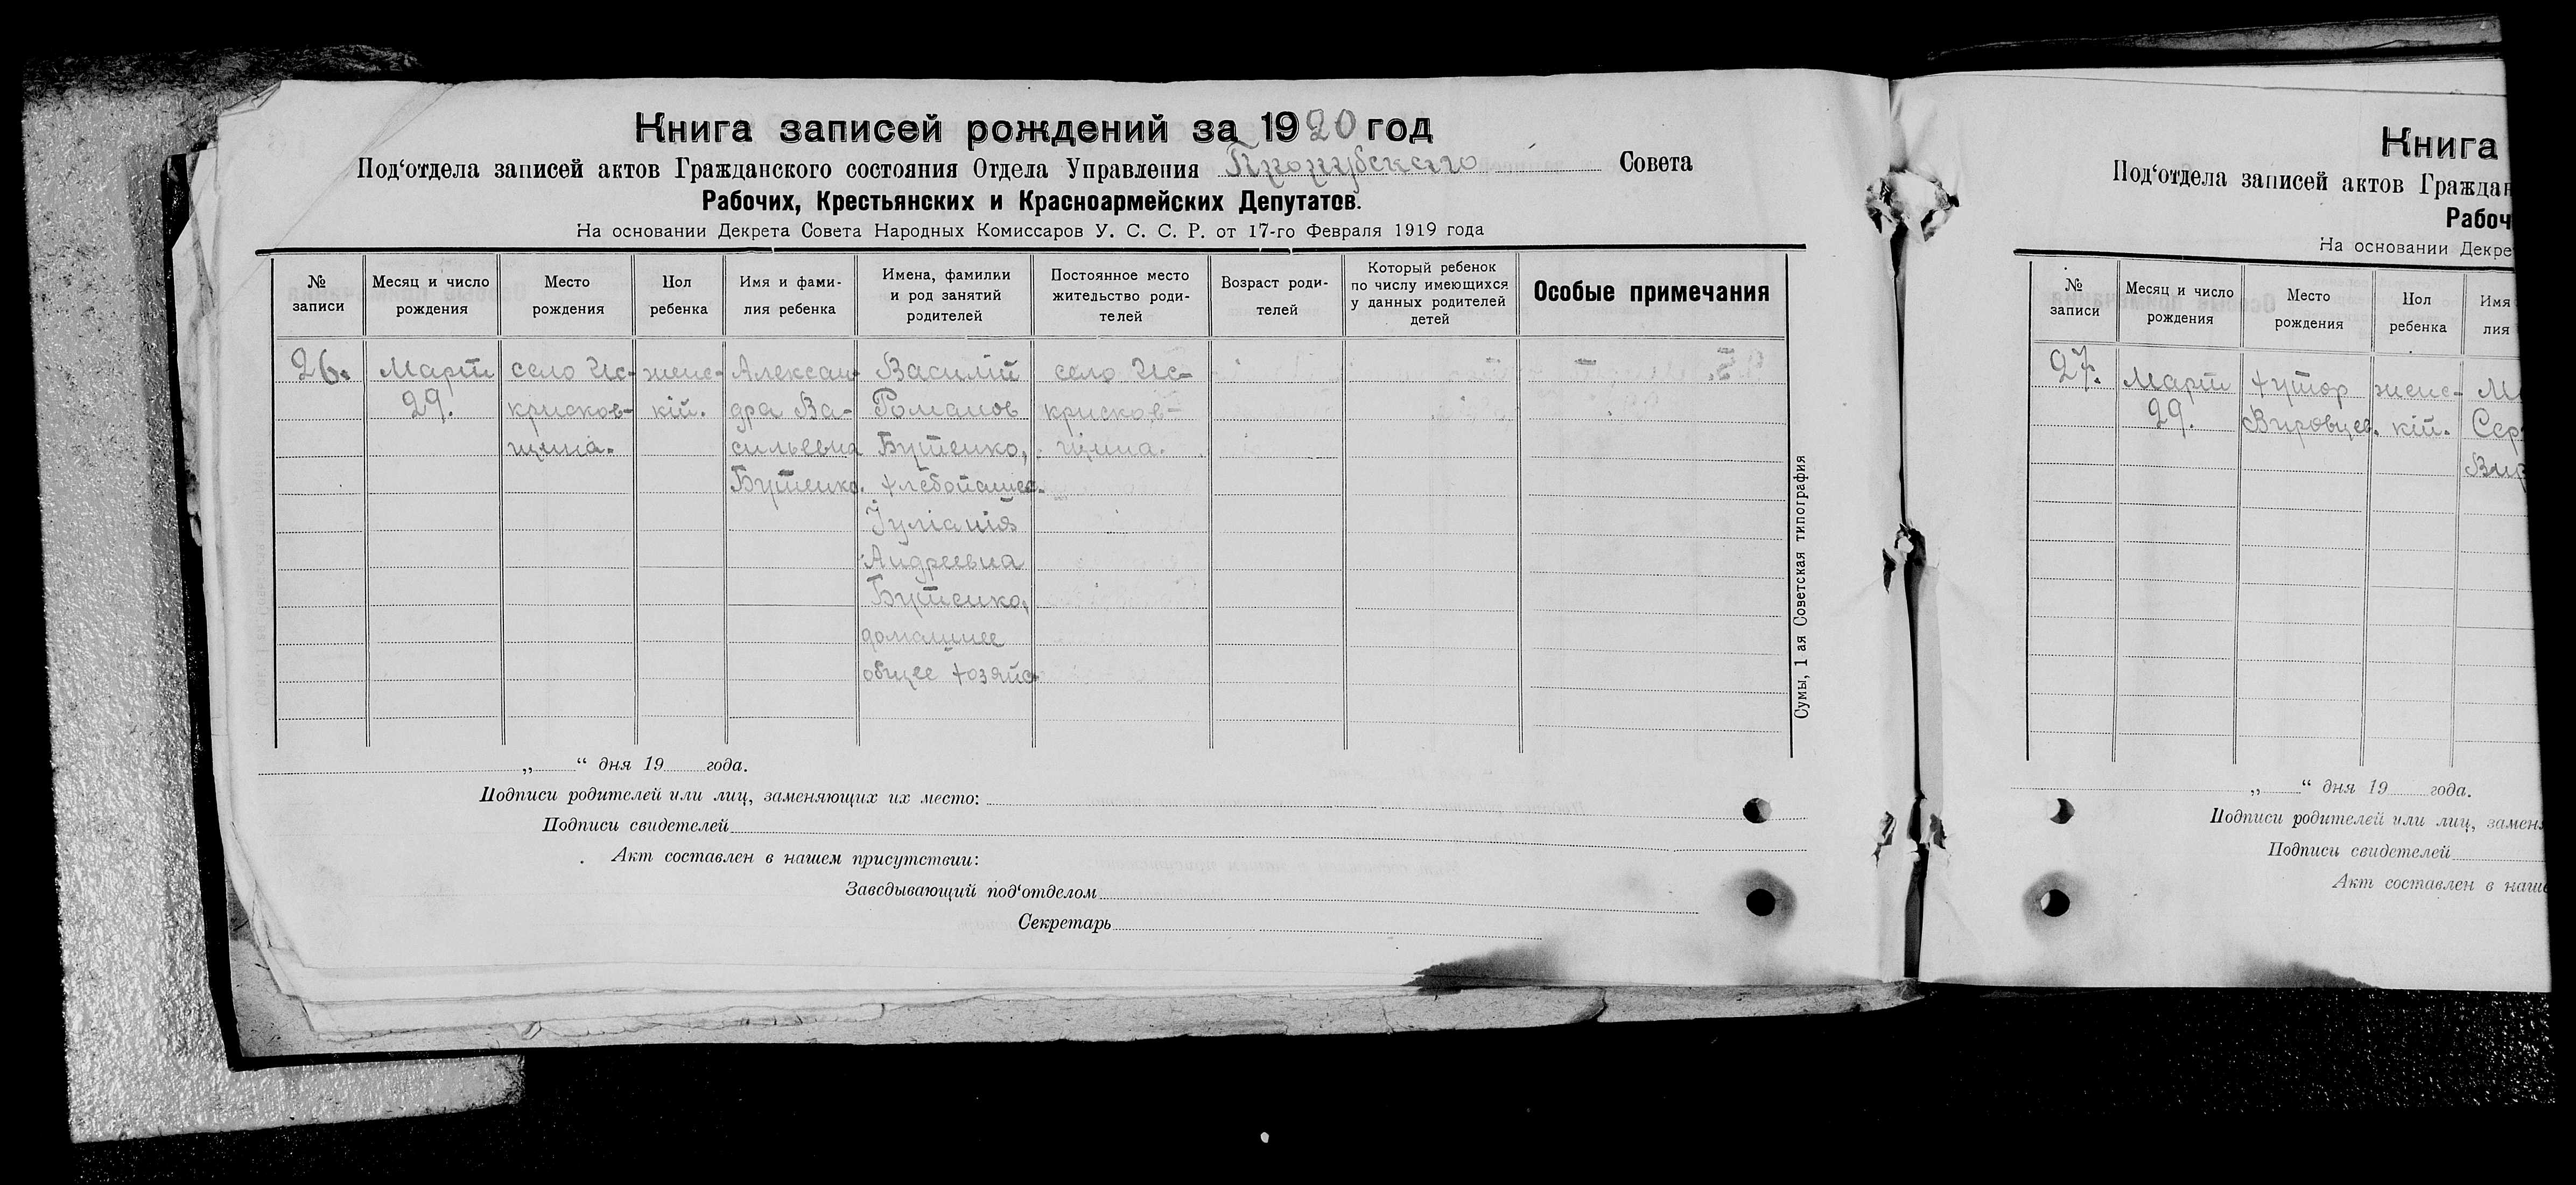 Книга записей рождений за 1920 год
Под‘отдела записей актов Гражданского состояния Отдела Управления Совета
Рабочих, Крестьянских и Красноармейских Депутатов.
На основании Декрета Совета Народных Комиссаров У. С. С. Р. от 17-го Февраля 1919 года
№
записи
Месяц и число
рождения
Место
рождения
Пол
ребенка
Имя и фами-
лия ребенка
Имена, фамилки
и род занятий
родителей
Постоянное место
жительство роди-
телей
Возраст роди-
телей
Который ребенок
по числу имеющихся
у данных родителей
детей
Особые примечания
26.
Март
29.
село Ис-
крисков-
щина.
женс-
кій.
Алексан-
дра Ва-
сильевна
Бутенко.
Василій
Романов
Бутенко,
хлебопашес.
Іуліанія
Андреевна
Бутенко,
домашнее
общее хозяйс
село Ис-
крисков-
щина.
„ “ дня 19 года.
Подписи родителей или лиц, заменяющих их место:
Подписи свидетелей
Акт составлен в нашем присутствии:
Заведывающий под‘отделом
Секретарь
Сумы, 1 ая Советская типография
Книга
Под‘отдела записей актов Граждан
Рабоч
На основании Декре
№
записи
Месяц и число
рождения
Место
рождения
Пол
ребенка
Имя
лия
27.
Март
29.
хутор
Вировцев.
женс-
кій.
М
Сер
Вир
„ “ дня 19 года.
Подписи родителей или лиц, заменя
Подписи свидетелей
Акт составлен в наше